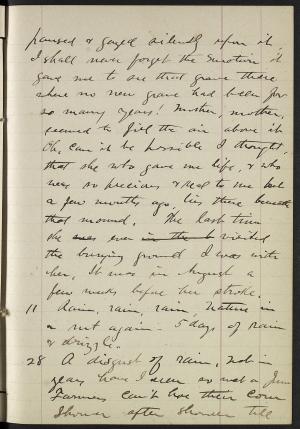 paused & gazed silently upon it.
I shall never forget the emotion it
gave me to see that grave there
where no new grave had been for
so many years! Mother, mother,
seemed to fill the air above it
Oh, can it be possible I thought,
that she who gave me life, & who
was so precious & real to me but
a few months ago, lies there beneath
that mound. The last time
she was ever in the visited
the burying ground I was with
her. It was in August a
few weeks before her stroke.
11 Rain, rain, rain, Nature in
a rut again - 5 days of rain
& drizzle.
28 A disgust of rain, not in
years have I seen so wet a June
Farmers can't hoe their corn
Shower after shower till